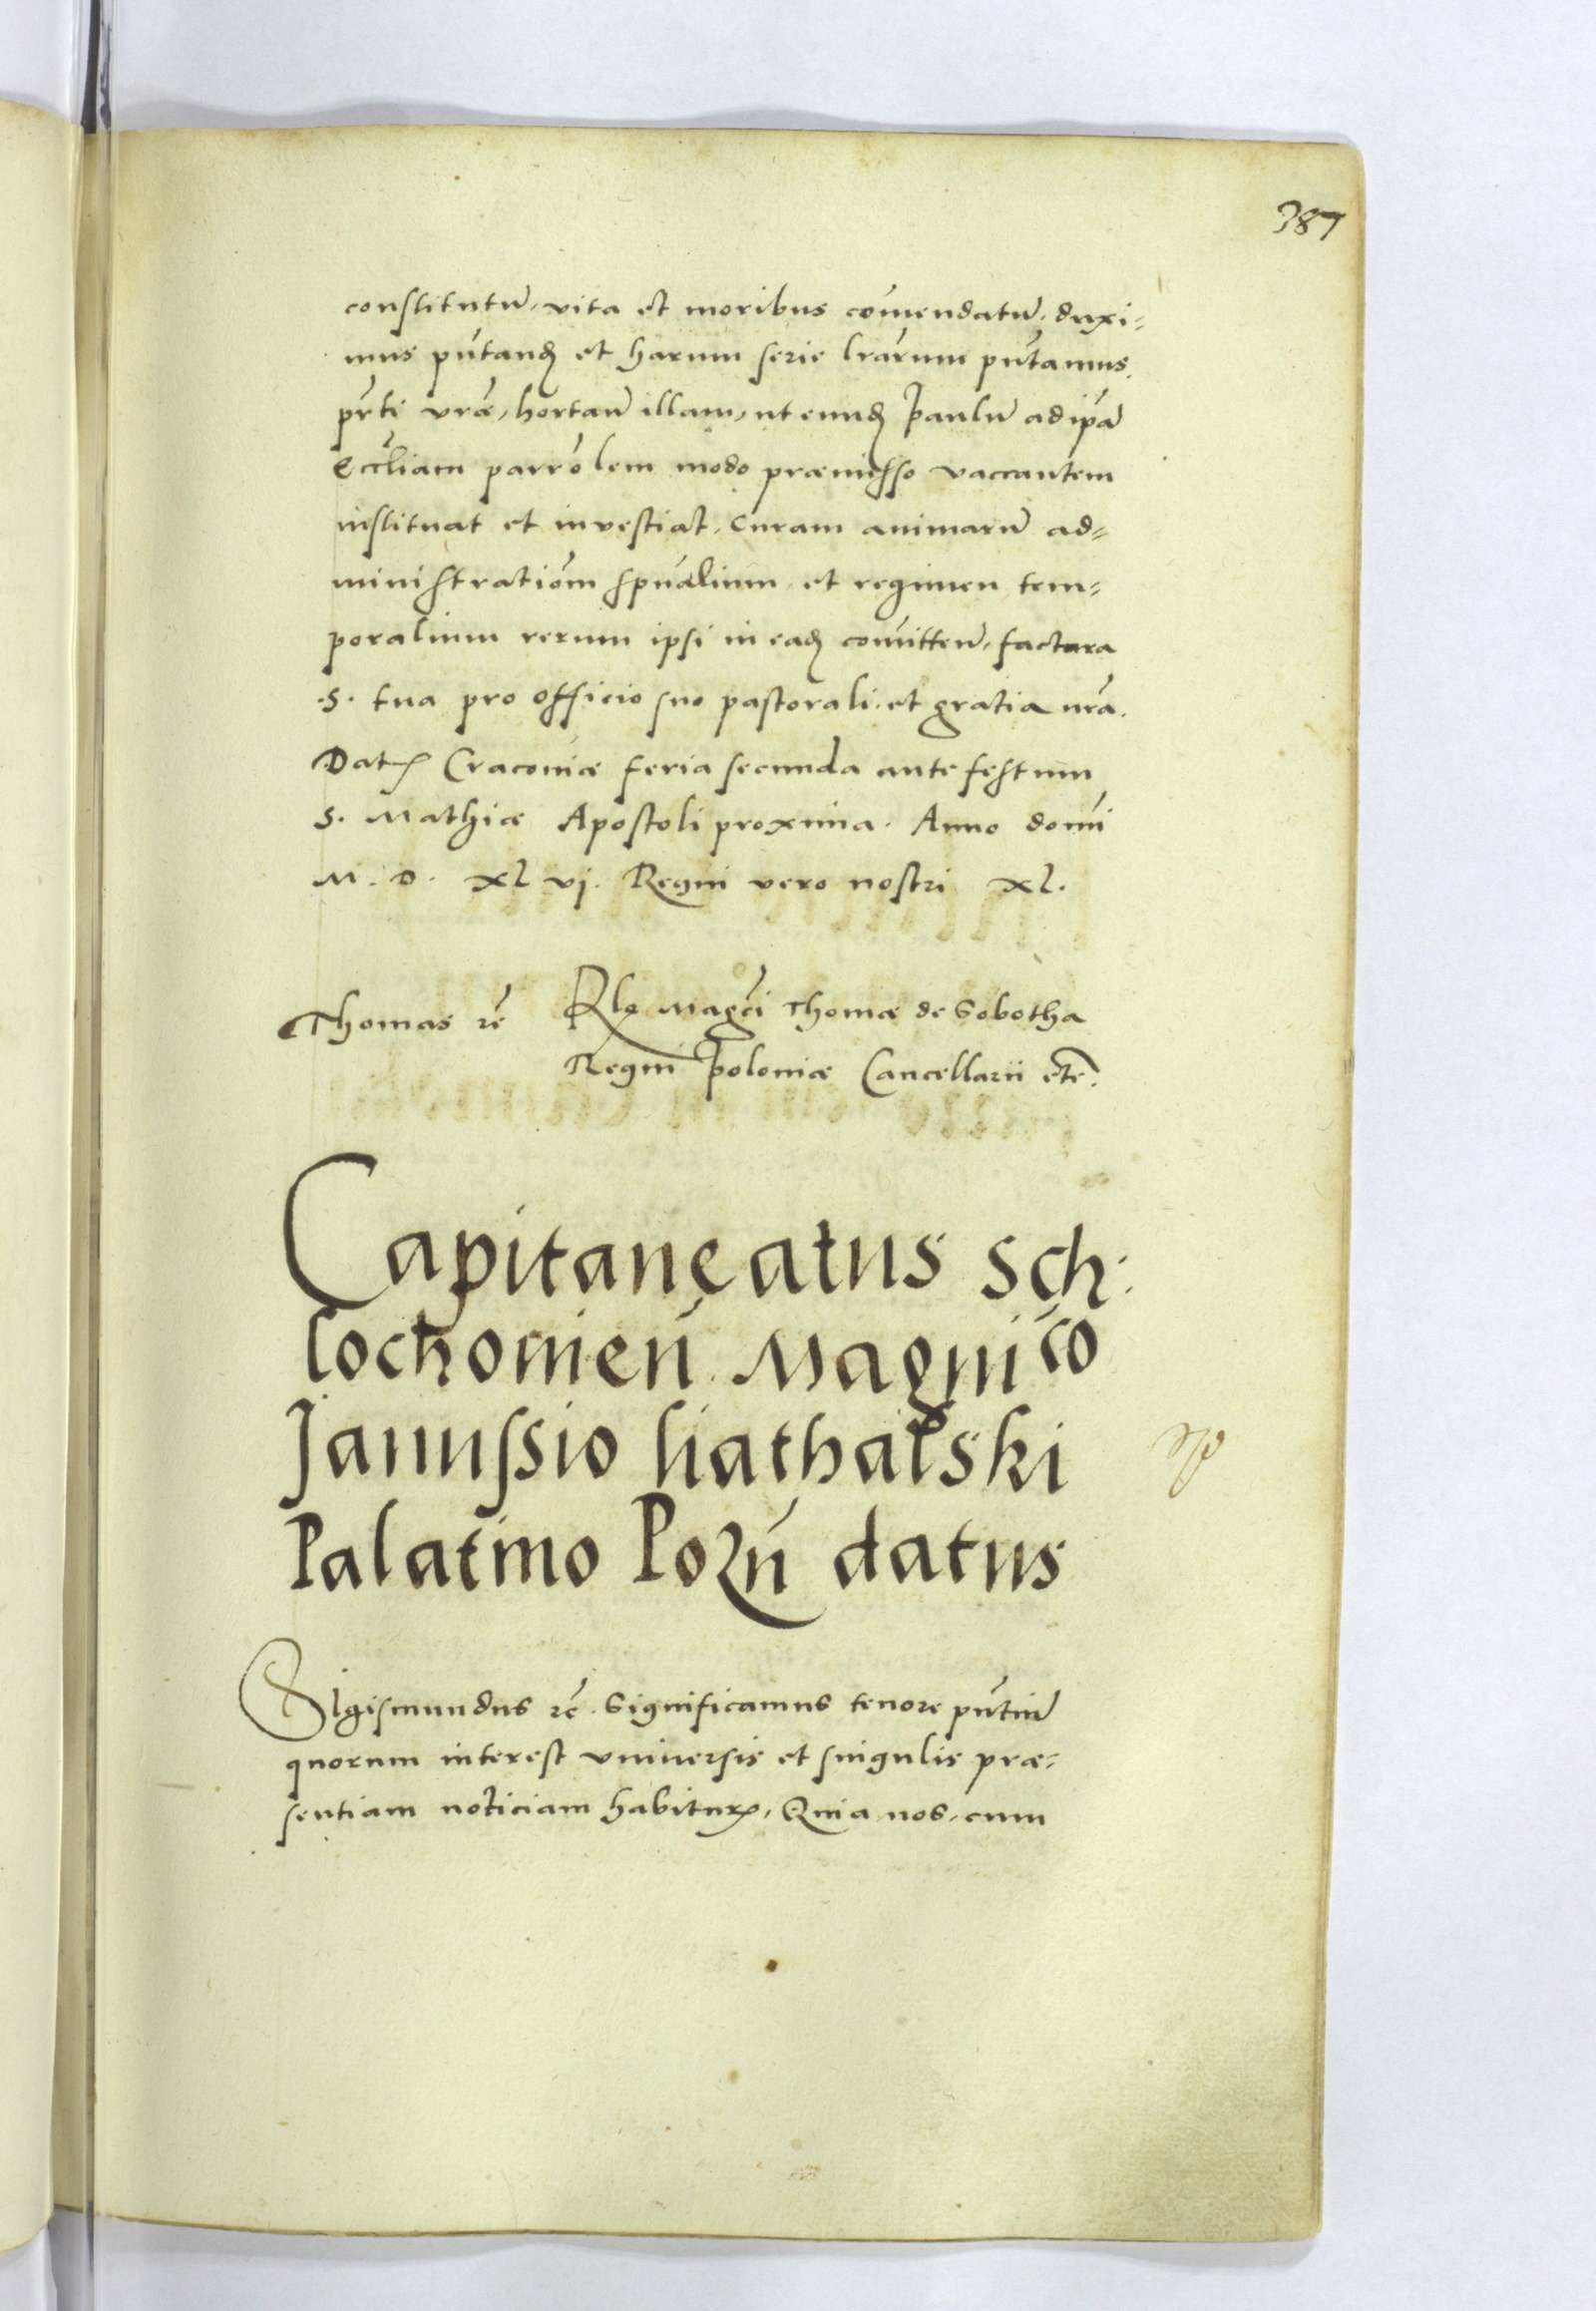 387
constitutū, vita et moribus com̄endatū, duxi-
mus pn̄tand̨ et harum serie lr̄arum pn̄tamus
pr̄ti vr̄æ, hortan̄ illam, ut eund̨ Paulū ad ip̄ā
Eccl̄iam parro̅lem modo præmisso vaccantem
instituat et investiat, Curam animarū ad-
ministratiōm sp̄ualium et regimen tem-
poralium rerum ipsi in ead̨ com̄itten̄, factura
.S. tua pro officio suo pastorali et gratia nr̄a.
Datꝭ Cracoviæ feria secunda ante festum
S. Mathiæ Apostoli proxima. Anno domī
M. D. XL vj. Regni vero nostri XL.
Thomas rē
Rlo Magcī Thomæ de Sobotha
Regni Poloniæ Cancellarii etc̄.
Capitaneatus Sch:
lochovien̄. Magnico
Janussio liathalski
Palatino Pozn̄ datus
Sigismundus rē. Significamus tenore pn̄tiū
quorum interest universis et singulis præ-
sentiam noticiam habiturꝭ, Quia nos, cum